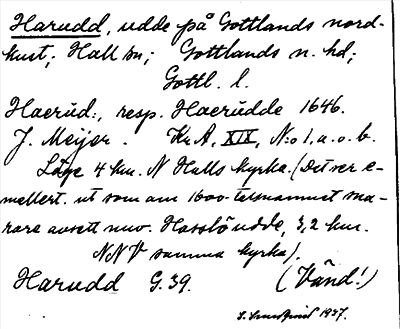 Harudd, udde på Gottlands nord-
kust; Hall sn; Gottlands n. hd;
Gottl. l.
Haerüd:, resp. Haerüdde 1646.
J. Meijer. Kr. A, XIX, N:o 1, a.o.b.
Läge 4 km. N Halls kyrka. (Det ser e-
mellert. ut som am 1600-talsnamnet sna-
rare avsett nuv. Hasslöudde, 3,2 km.
NNV samma kyrka).
Harudd G. 39. (Vänd!)
1937.